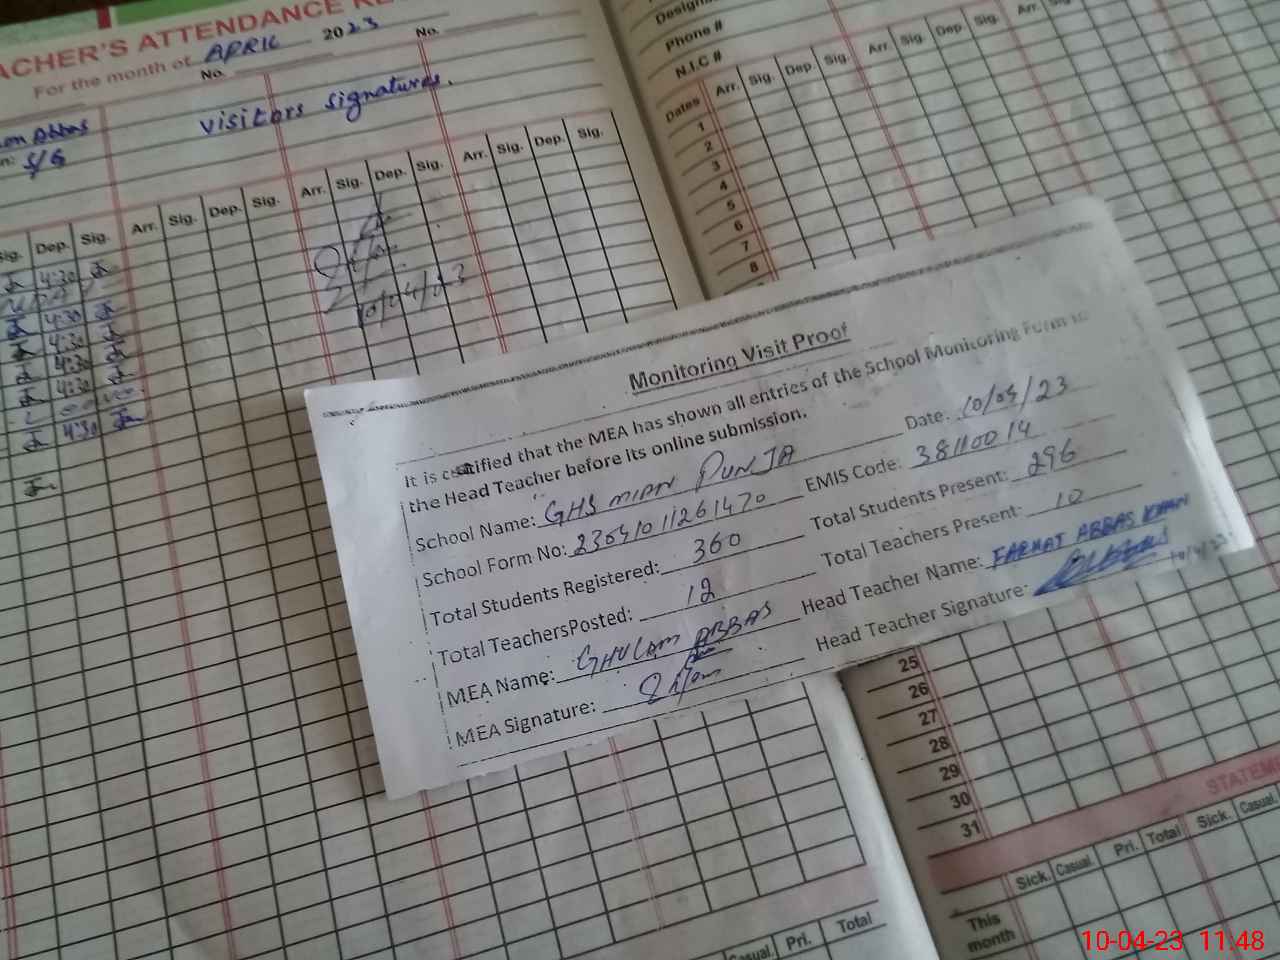 TEACHER'S ATTENDANCE RE
For the month of APRIL 2023
No. No.
Abbas
visitors signatures.
S/G
Sig. Dep. Sig. Arr. Sig. Dep. Sig. Arr. Sig. Dep. Sig. Arr. Sig. Dep. Sig.
4:30
4:30
4:30
4:30
4:30
4:30
10/04/23
Phone #
N.I.C #
Dates Arr. Sig. Dep. Sig. Arr. Sig. Dep. Sig. Arr.
1
2
3
4
5
6
7
8
Monitoring Visit Proof
It is certified that the MEA has shown all entries of the School Monitoring Form to
the Head Teacher before its online submission.
Date. 10/04/23
School Name: GHS MIAN PUNJA
EMIS Code: 38110014
School Form No:
Total Students Present: 296
Total Students Registered: 360
Total Teachers Present: 10
Total TeachersPosted: 12
Head Teacher Name: FARHAT ABBAS KHAN
MEA Name: GHULAM ABBAS
Head Teacher Signature: 10/4/23
MEA Signature:
25
26
27
28
29
30
31
STATEME
Sick. Casual. Pri. Total Sick. Casual.
This
month
Casual. Pri. Total
10-04-23 11.48